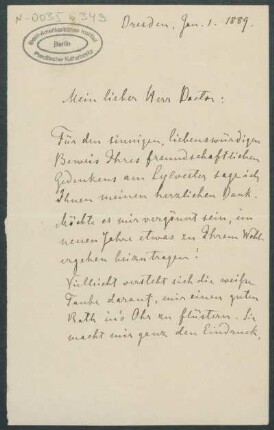 N-0035 b 349
Ibero-Amerikanisches Institut
Berlin
Preußischer Kulturbesitz
Dresden, Jan. 1. 1889.
Mein lieber Herr Doctor:
Für den sinnigen, liebenswürdigen
Beweis Ihres freundschaftlichen
Gedenkens am Sylvester sage ich
Ihnen meinen herzlichen Dank.
Möchte es mir vergönnt sein, im
neuen Jahre etwas zu Ihrem Wohl-
ergehen beizutragen!
Vielleicht versteht sich die weiße
Taube darauf, mir einen guten
Rath in's Ohr zu flüstern. Sie
macht mir ganz den Eindruck,